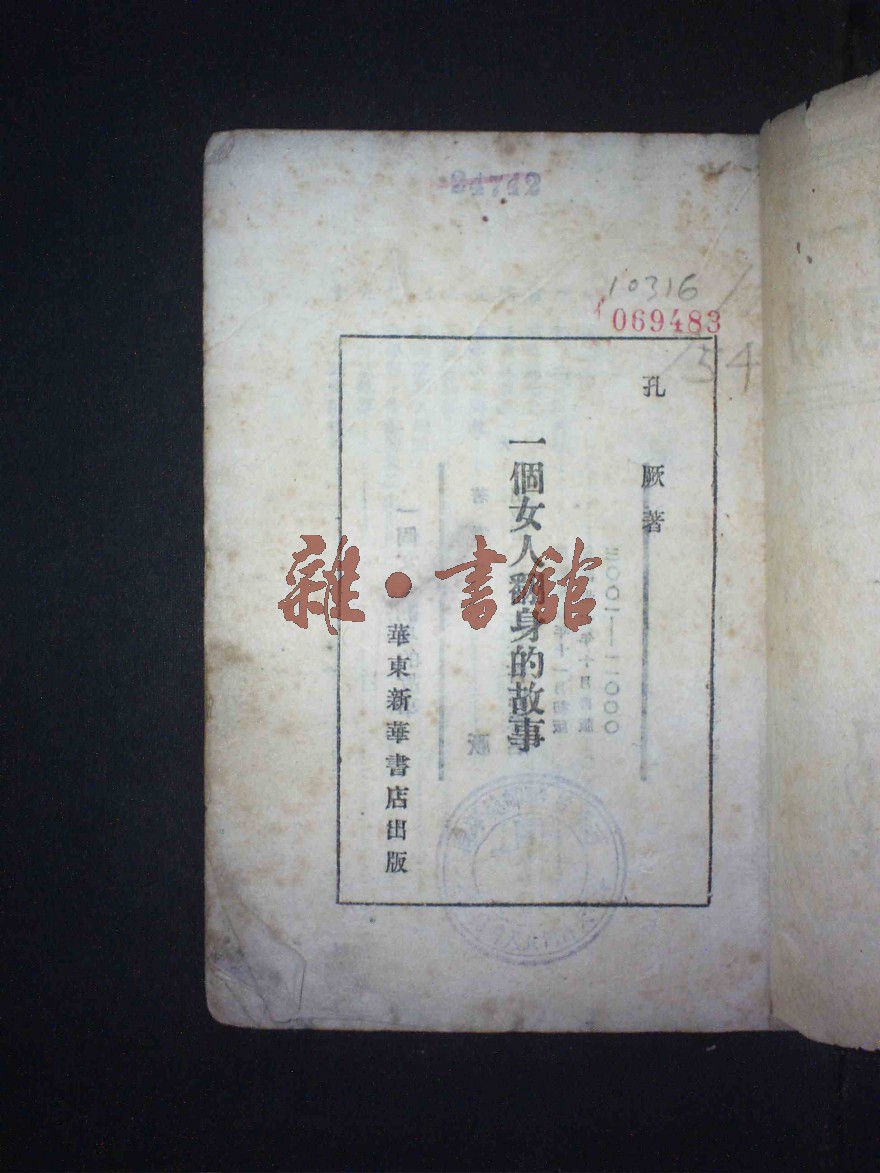 24742
10316
069483
54
孔 厥著
一個女人翻身的故事
華東新華書店出版
三〇〇一—一一〇〇〇
雜·書館